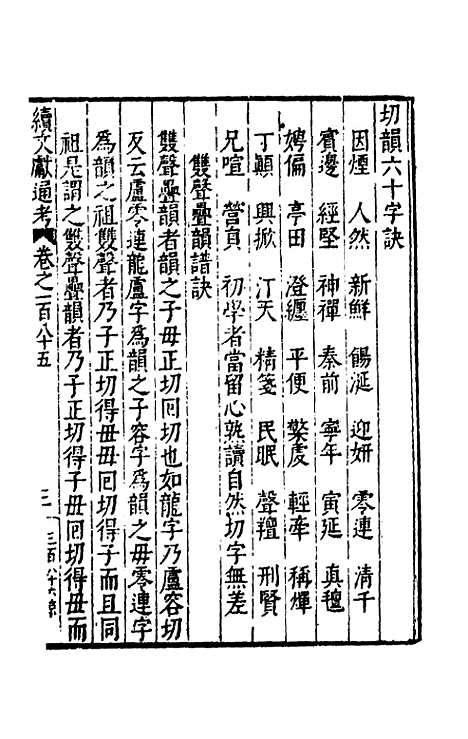 切韻六十字訣
因煙 人然 新鮮 餳涎 迎妍 零連 清千
賓邊 經堅 神禪 秦前 寧年 寅延 真氊
娉偏 亭田 澄纏 平便 檠䖍 輕牽 稱燀
丁顛 興掀 汀天 精箋 民眠 聲羶 刑賢
兄喧 營員 初學者當留心孰讀自然切字無差
雙聲疊韻譜訣
雙聲疊韻者韻之子毋正切囘切也如龍字乃盧容切
反云盧零連龍盧字爲韻之子容字爲韻之毋零連字
爲韻之祖雙聲者乃子正切得毋毋囘切得子而且同
祖是謂之雙聲疊韻者乃子正切得子毋囘切得毋而
續文獻通考 卷之一百八十五 三